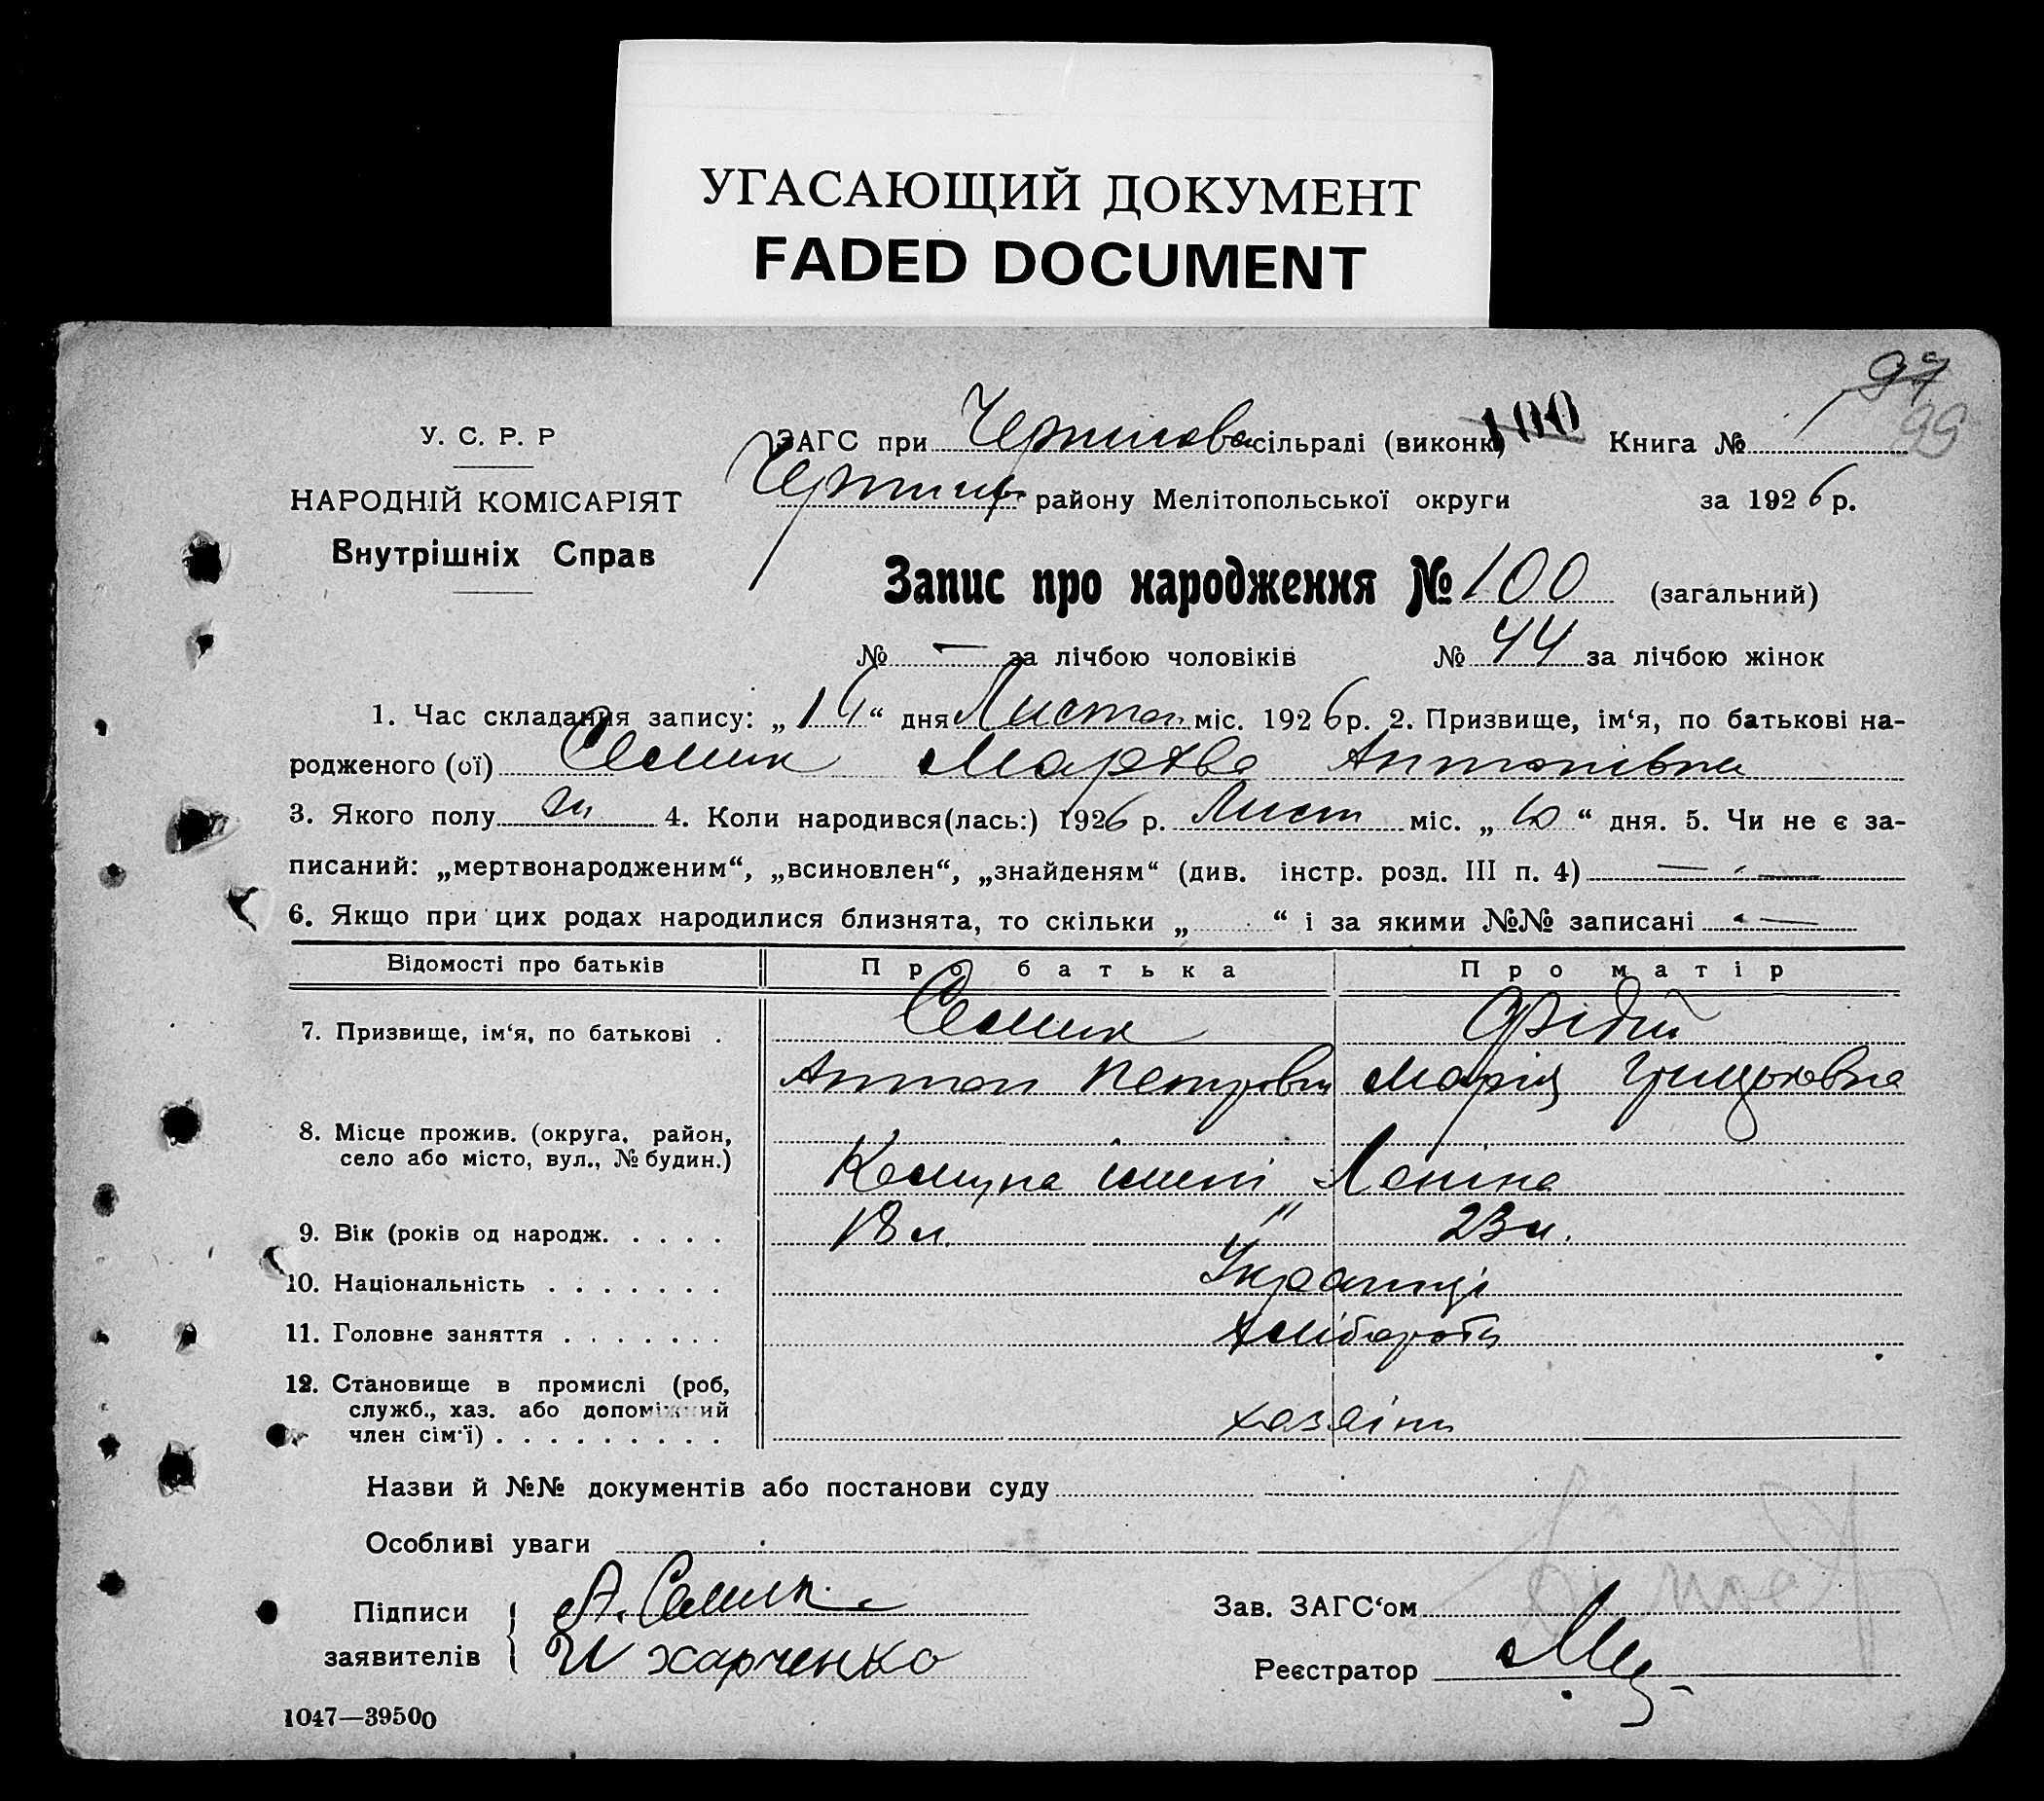 УГАСАЮЩИЙ ДОКУМЕНТ
FADED DOCUMENT
97
99
У. С. Р. Р
НАРОДНІЙ КОМІСАРІЯТ
Внутрішніх Справ
ЗАГС при сільраді (виконк) 100 Книга № 1
району Мелітопольської округи за 1926 р.
Запис про народження № 100 (загальний)
№ — за лічбою чоловіків № 44 за лічбою жінок
1. Час складання запису: „ “ дня Листоп. міс. 1926 р. 2. Призвище, ім‘я, по батькові на-
родженого (ої) Семик Антонівна
3. Якого полу 4. Коли народився(лась:) 1926 р. Лист міс. „ “ дня. 5. Чи не є за-
писаний: „мертвонародженим“, „всиновлен“, „знайденям“ (див. інстр. розд. III п. 4) —
6. Якщо при цих родах народилися близнята, то скільки „ “ і за якими №№ записані —
Відомості про батьків Про батька Про матір
7. Призвище, ім‘я, по батькові . Семик
Антон Петрович Марія
8. Місце прожив. (округа, район,
село або місто, вул., № будин.) Комуна імені Леніна
9. Вік (років од народж. . . . . 18 л. " 23 л.
10. Національність . . . . . . . Українці
11. Головне заняття . . . . . . . Хлібороби
12. Становище в промислі (роб,
служб., хаз. або допоміжний
член сім‘ї) . . . . . . . . . хазяїни
Назви й №№ документів або постанови суду
Особливі уваги
Підписи А. Семик
заявителів И харченко
Зав. ЗАГС‘ом
Реєстратор
1047—39500